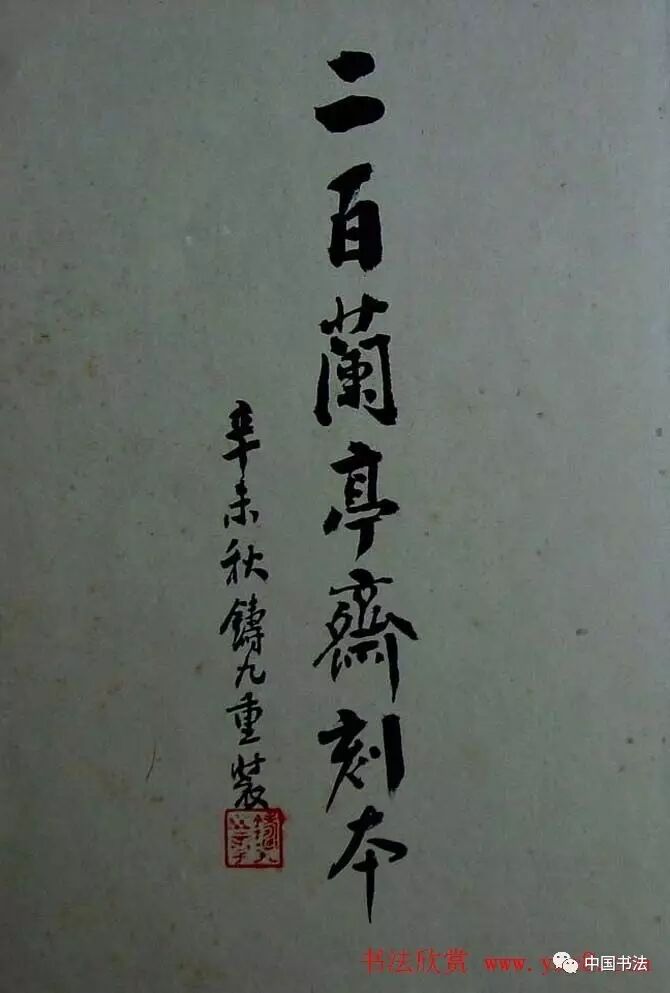 二百蘭亭齋刻本
辛未秋鑄九重裝
书法欣赏 www.
中国书法